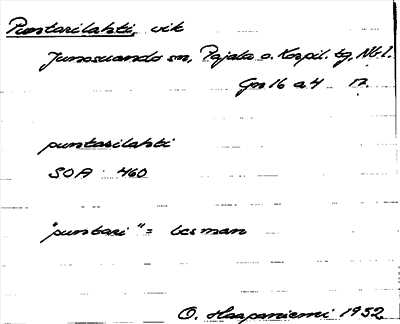 Puostarilahti, vik
Junosuando sn, Pajala o. Korpil. tg, Nb.l.
Gn 16 a 4 12.
puostarilahti
SOA: 460
"puostari" = lesman
O. Haapaniemi 1932